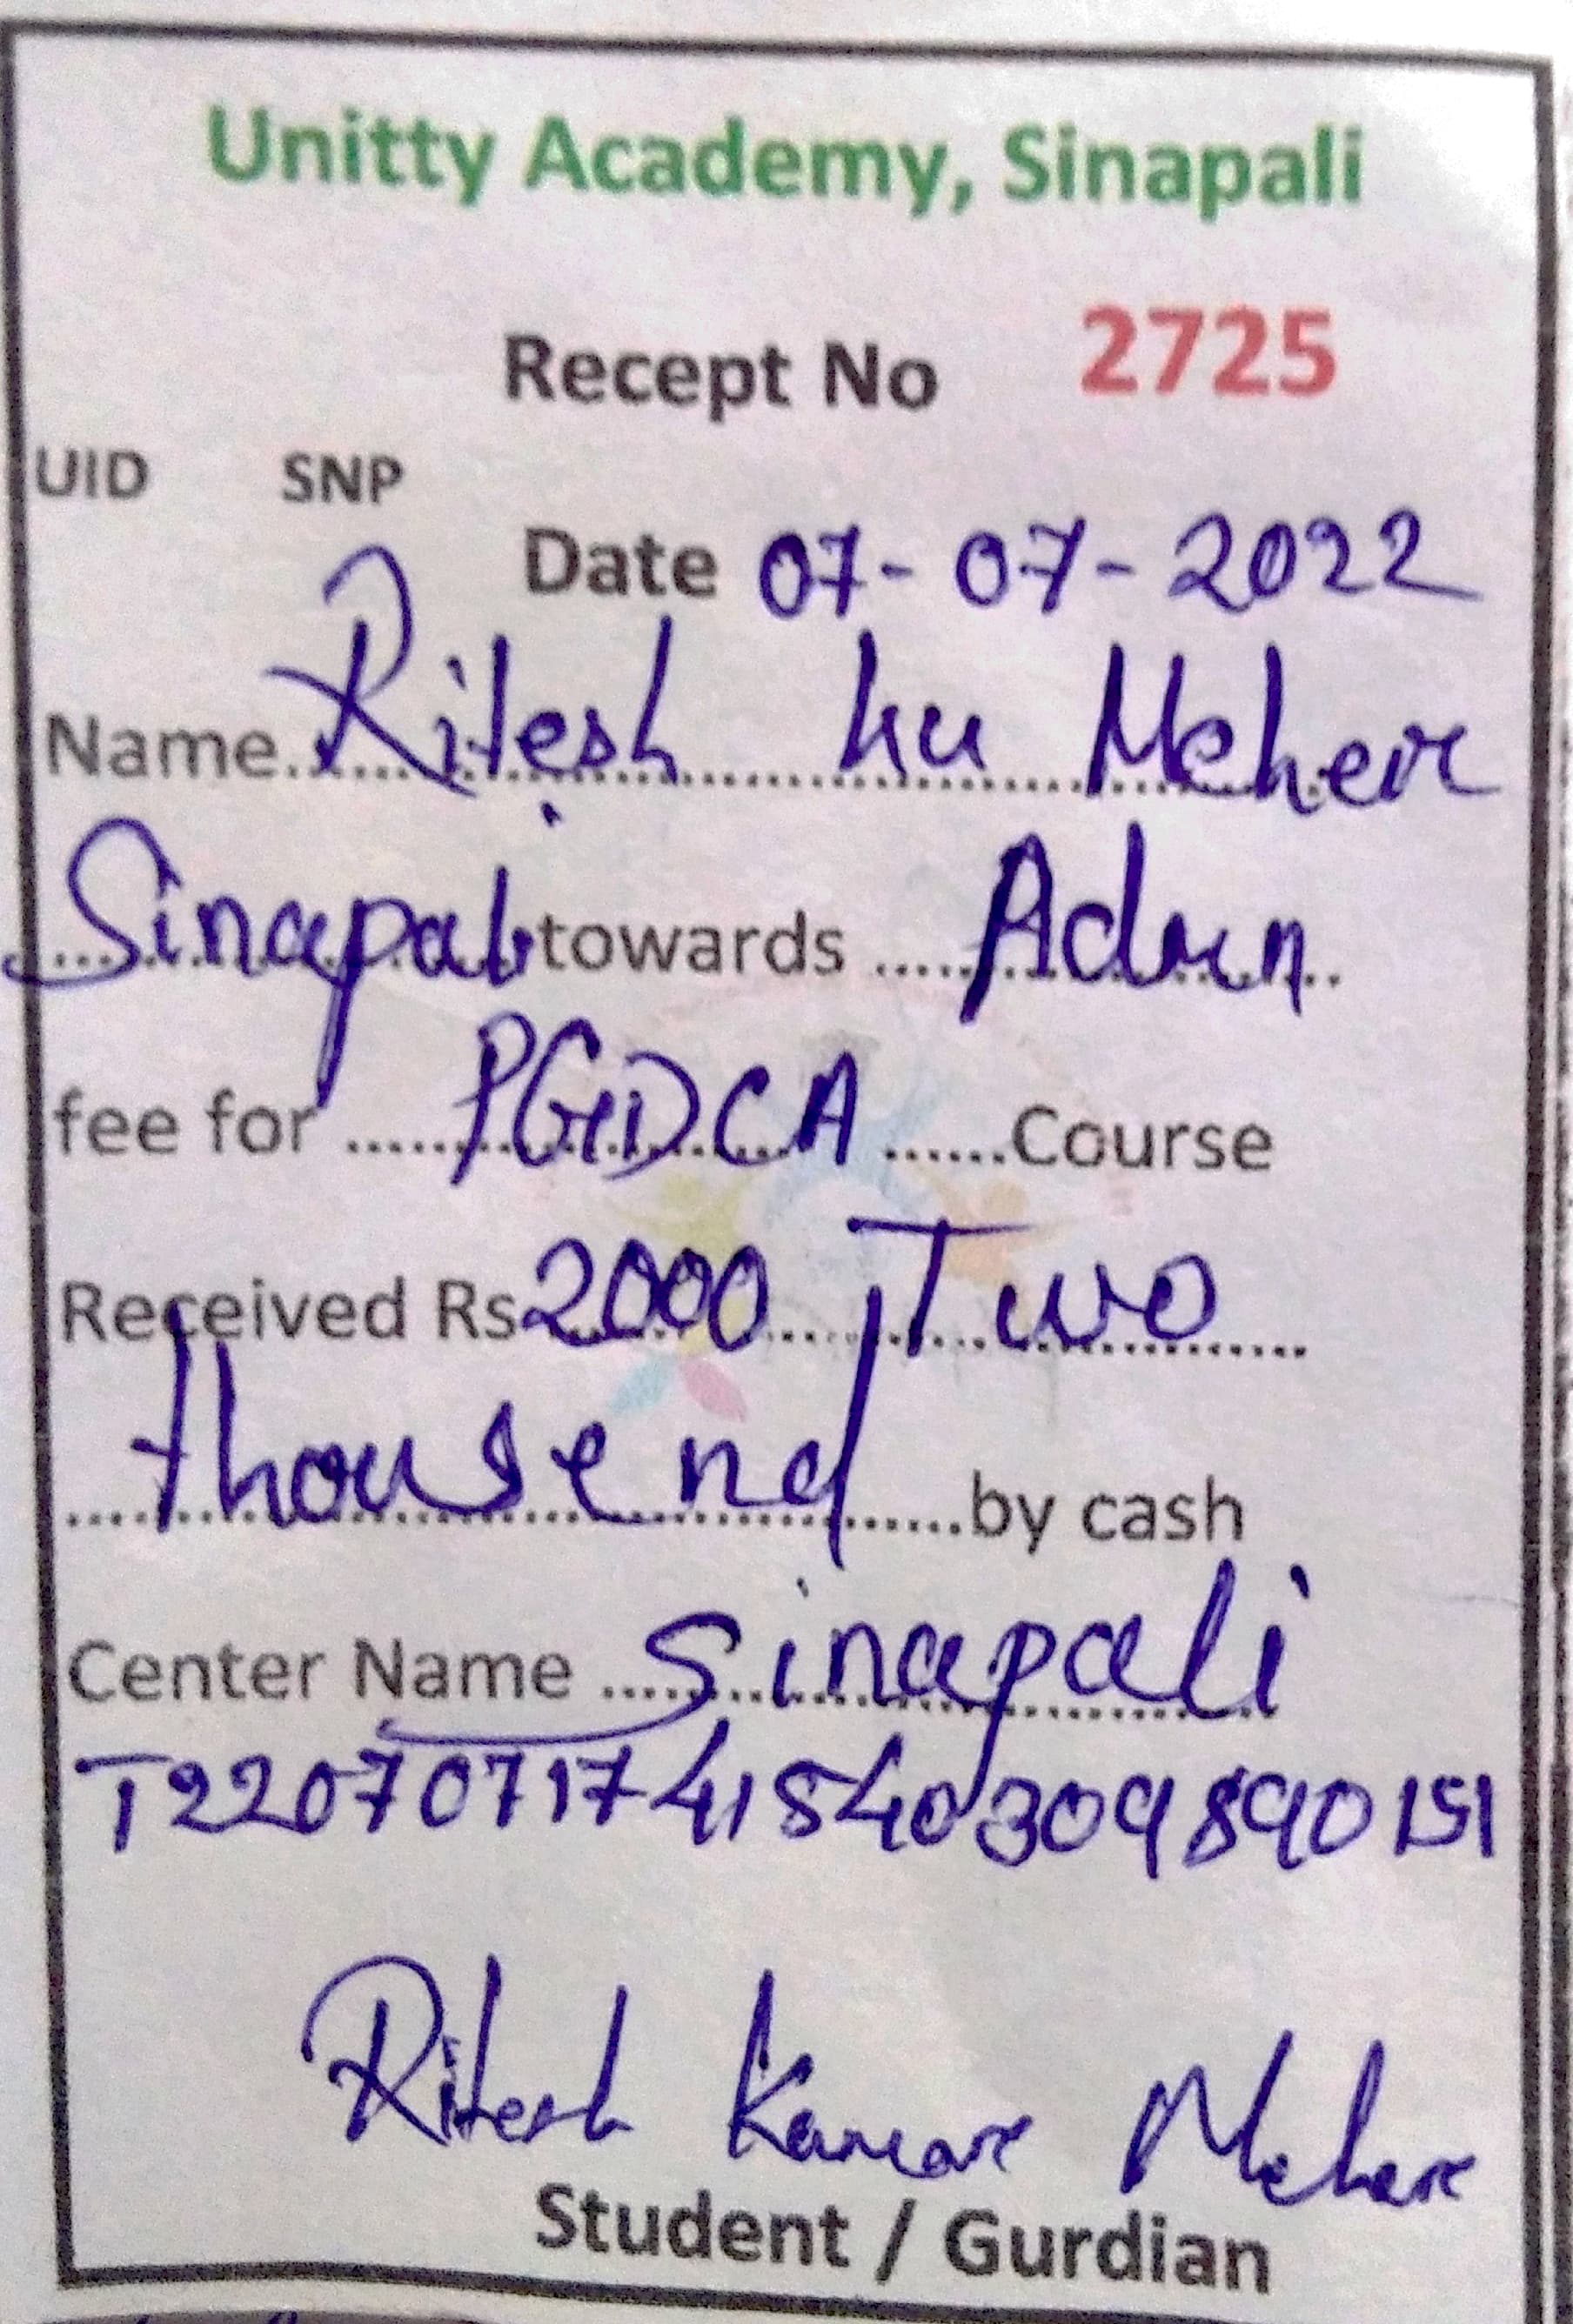 Unitty Academy, Sinapali
Recept No 2725
UID SNP
Date 07-07-2022
Name Ritesh ku Meher
Sinapali towards Admn
fee for PGDCA Course
Received Rs 2000 Two
thousend by cash
Center Name Sinapali
T2207071741540309890151
Ritesh Kumar Meher
Student / Gurdian